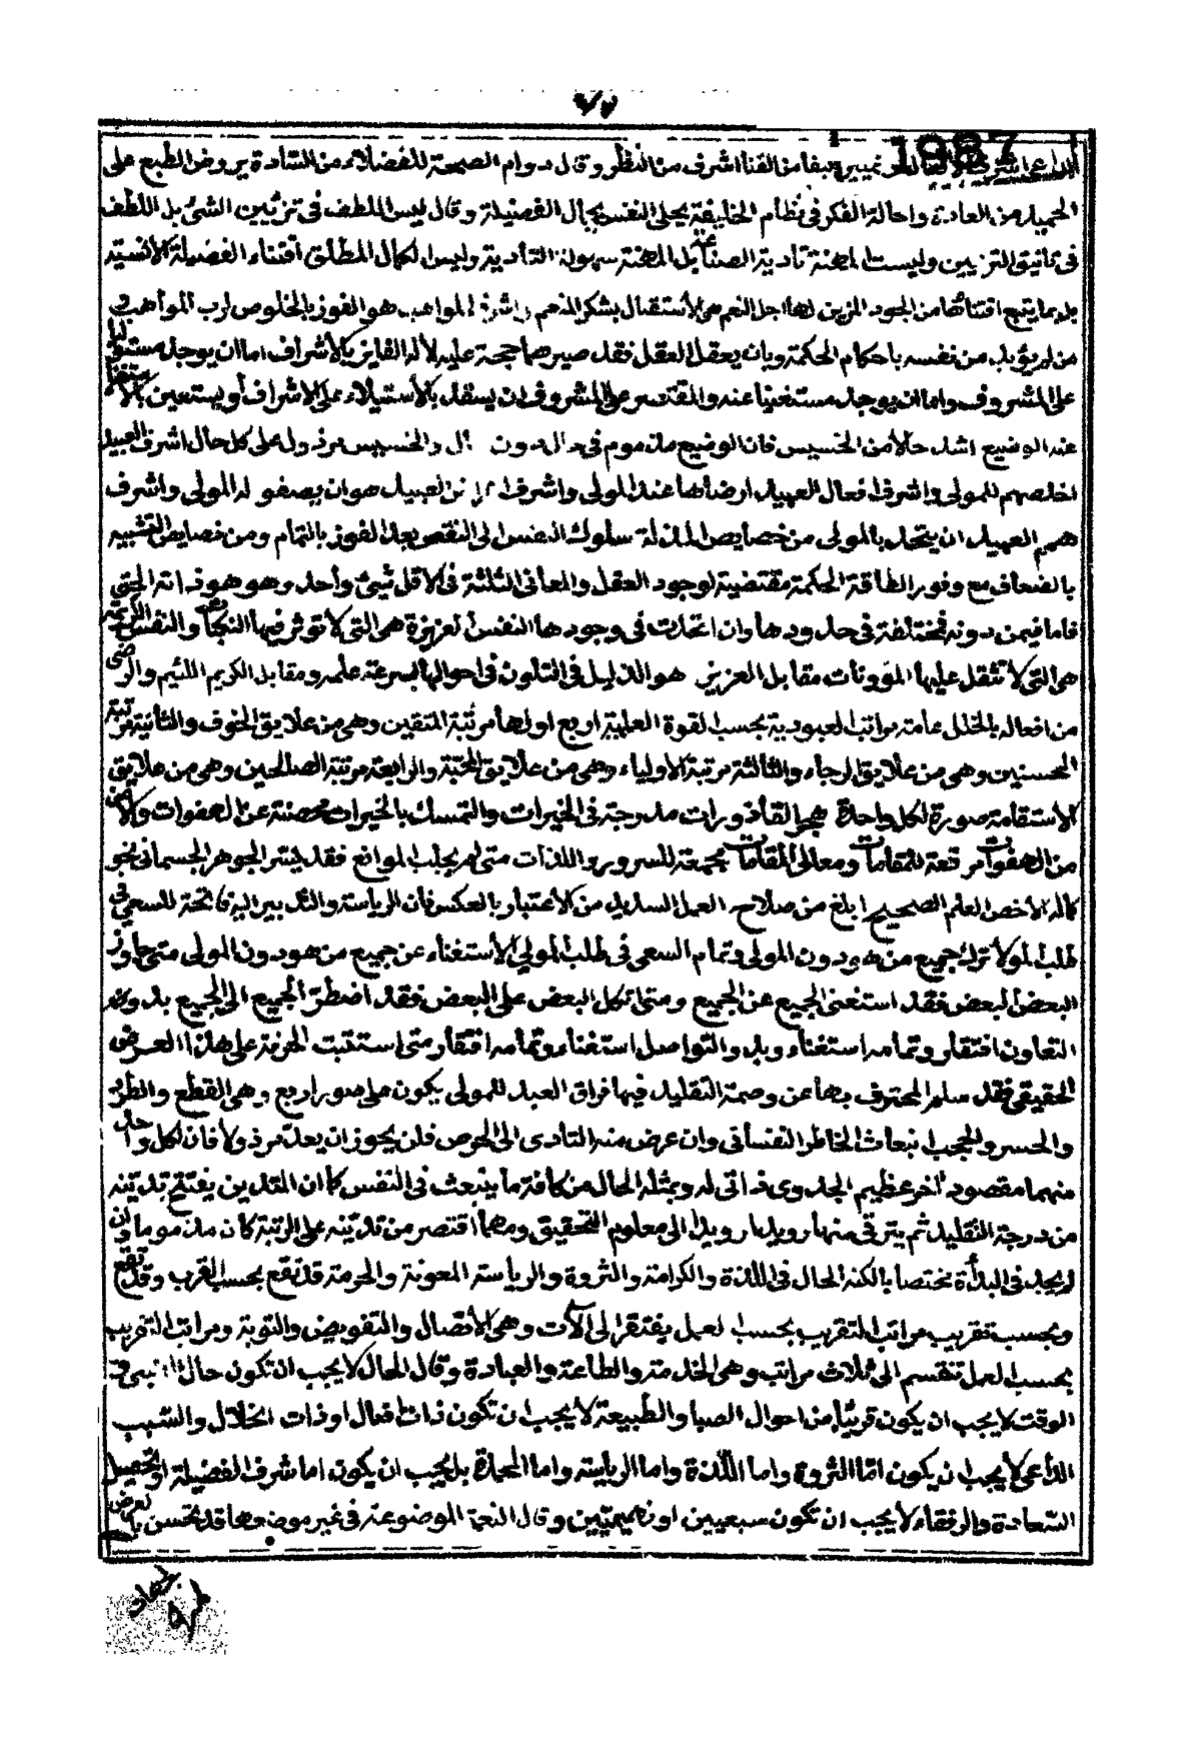 ٧٧
1987
الداعي اشرف من القنا اشرف من النظر وقال دوام الصحة للفضلاء من السادة يروض الطبع على
الجميل من العادة واحالة الفكر في نظام الخليفة يحلى النفس بجمال الفضيلة وقال ليس اللطف في تزيين الشئ بل اللطف
في تانيق التزيين وليست المهنة تأدية الصنايع بل المهنة سهولة التأدية وليس الكمال المطلق اقتناء الفضيلة الانسية
بل ما يتبع اقتنائها من الجود المزين لها اجل النعم هي الاستقبال بشكر المنعم واشرف المواهب هو الفوز بالخلوص لرب المواهب
من لم يؤيد من نفسه باحكام الحكمة وبان يعقل العقل فقد صيرهما حجة عليه لا له الفايز بالاشراف اما ان يوجد مستوليا
على المشروف واما ان يوجد مستغنيا عنه والمقتصر على المشروف ان يستقل بالاستيلاء على الاشراف او يستعين بالاستغناء
عند الوضيع اشد حالا من الخسيس فان الوضيع مذموم في حال دون حال والخسيس مرذول على كل حال اشرف العبيد
اخلصهم للمولى واشرف افعال العبيد ارضاها عند المولى واشرف العبيد هو ان يصفو له المولى واشرف
همم العبيد ان يتحد بالمولى من خصايص المذلة سلوك النفس الى النقص بعد الفوز بالتمام ومن خصايص التشبيه
بالضعاف مع وفور الطاقة الحكمة مقتضية لوجود العقل والمعاني الثلثة في الاقل شئ واحد وهو هو ذاته الحق
فاما فيمن دونه فمختلفة في حدودها وان اتحدت في وجودها النفس العزيزة هي التي لا تؤثر فيها النكبات والنفس الكريمة
هي التي لا تثقل عليها المؤونات مقابل العزيز هو الذليل في التلون في احوالها بسرعة علمه ومقابل الكريم اللئيم والراضي
من افعاله بالخلل عامة مراتب العبودية بحسب القوة العلمية اربع اولها مرتبة المتقين وهي من علايق الخوف والثانية مرتبة
المحسنين وهي من علايق الرجاء والثالثة مرتبة الاولياء وهي من علايق المحبة والرابعة مرتبة الصالحين وهي من علايق
الاستقامة صورة لكل واحدة هجر القاذورات مدرجة في الخيرات والتمسك بالخيرات محصنة عن الهفوات والامن
من الهفوات مرقعة للمقامات ومعالى المقامات مجمعة للسرور واللذات متى لم يجلب الموانع فقد ليتسر الجوهر الجسماني نحو
كماله الاخص العلم الصحيح ابلغ من صلاح العمل السديد من الاعتبار بالعكس فان الرياسة والتدبير اليه فاتحة للسعي في
طلب المولا ترك جميع من هو دون المولى وتمام السعى في طلب المولى الاستغناء عن جميع من هو دون المولى متى جاوز
البعض البعض فقد استغنى الجميع عن الجميع ومتى اتكل البعض على البعض فقد اضطر الجميع الى الجميع بدو
التعاون افتقار وتمامه استغناء وبدو التواصل استغناء وتمامه افتقار متى استقبت الحرفة على هذا العرض
الحقيقي فقد سلم المحترف بها عن وصمة التقليد فيها فراق العبد للمولى يكون على صور اربع وهي القطع والطرد
والحسر والحجب انبعاث الخاطر النفساني وان عرض منه التادى الى الحرص فلن يجوز ان يعد مرذولا فان لكل واحد
منهما مقصود اخر عظيم الجدوى ذاتي له وبمثله الحال عن كافة ما ينبعث في النفس كما ان المتدين يفتتح تدينه
من درجة التقليد ثم يترقى منها رويدا رويدا الى معلوم التحقيق ومهما اقتصر من تدينه على الرتبة كان مذموما وان
لم يجد في البدأة مختصا بالكنه الحال في اللذة والكرامة والثروة والرياسة المعونة والحرمة قد تقع بحسب القرب وقد تقع
وبحسب تقريب مراتب التقريب بحسب العمل يفتقر الى الآلات وهي الاتصال والتفويض والتوبة ومراتب التقريب
بحسب العمل تنقسم الى ثلاث مراتب وهي الخدمة والطاعة والعبادة وقال الحال لا يجب ان تكون حال
الوقت لا يجب ان يكون قريبا من احوال الصبا والطبيعة لا يجب ان تكون ذات افعال او ذات اخلال والسبب
الداعي لا يجب ان يكون اما الثروة واما اللذة واما الرياسة واما المحمدة بل يجب ان يكون اما شرف الفضيلة او تحصيل
السعادة والرفقاء لا يجب ان تكون سبعيين او بهيميين وقال النعمة الموضوعة في غير موضعها قد تحسن بالعرض